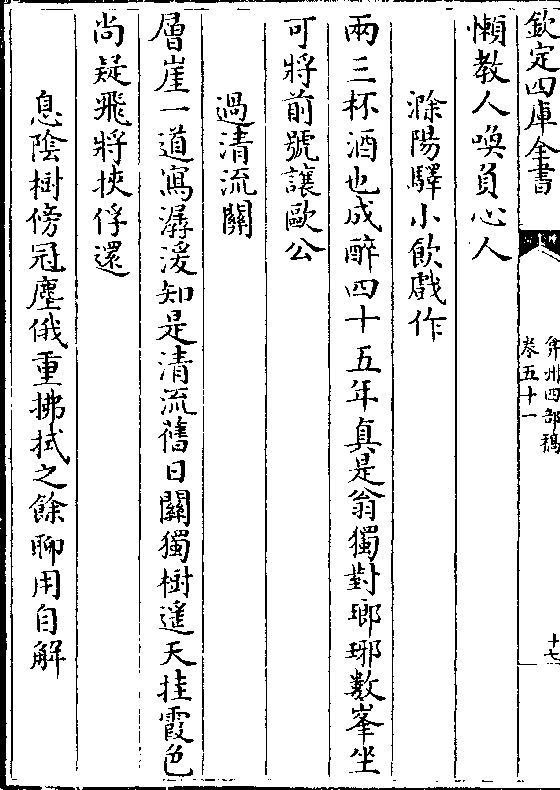 欽定四庫全書
弇州四部稿
卷五十一
十七
懶教人喚負心人
滁陽驛小飲戲作
兩三杯酒也成醉四十五年真是翁獨對瑯琊數峯坐
可將前號讓歐公
過清流關
層崖一道寫潺湲知是清流舊日關獨樹遙天挂霞色
尚疑飛將挾俘還
息陰樹傍冠塵俄重拂拭之餘聊用自解